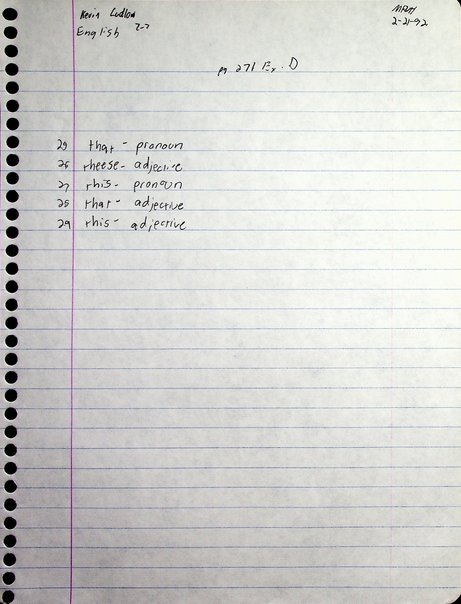 Kevin Ludlow
English 7-7
2-21-92
pg 271 Ex. D
25 that - pronoun
26 rheese - adjective
27 rhis - pronoun
28 that - adjective
29 rhis - adjective